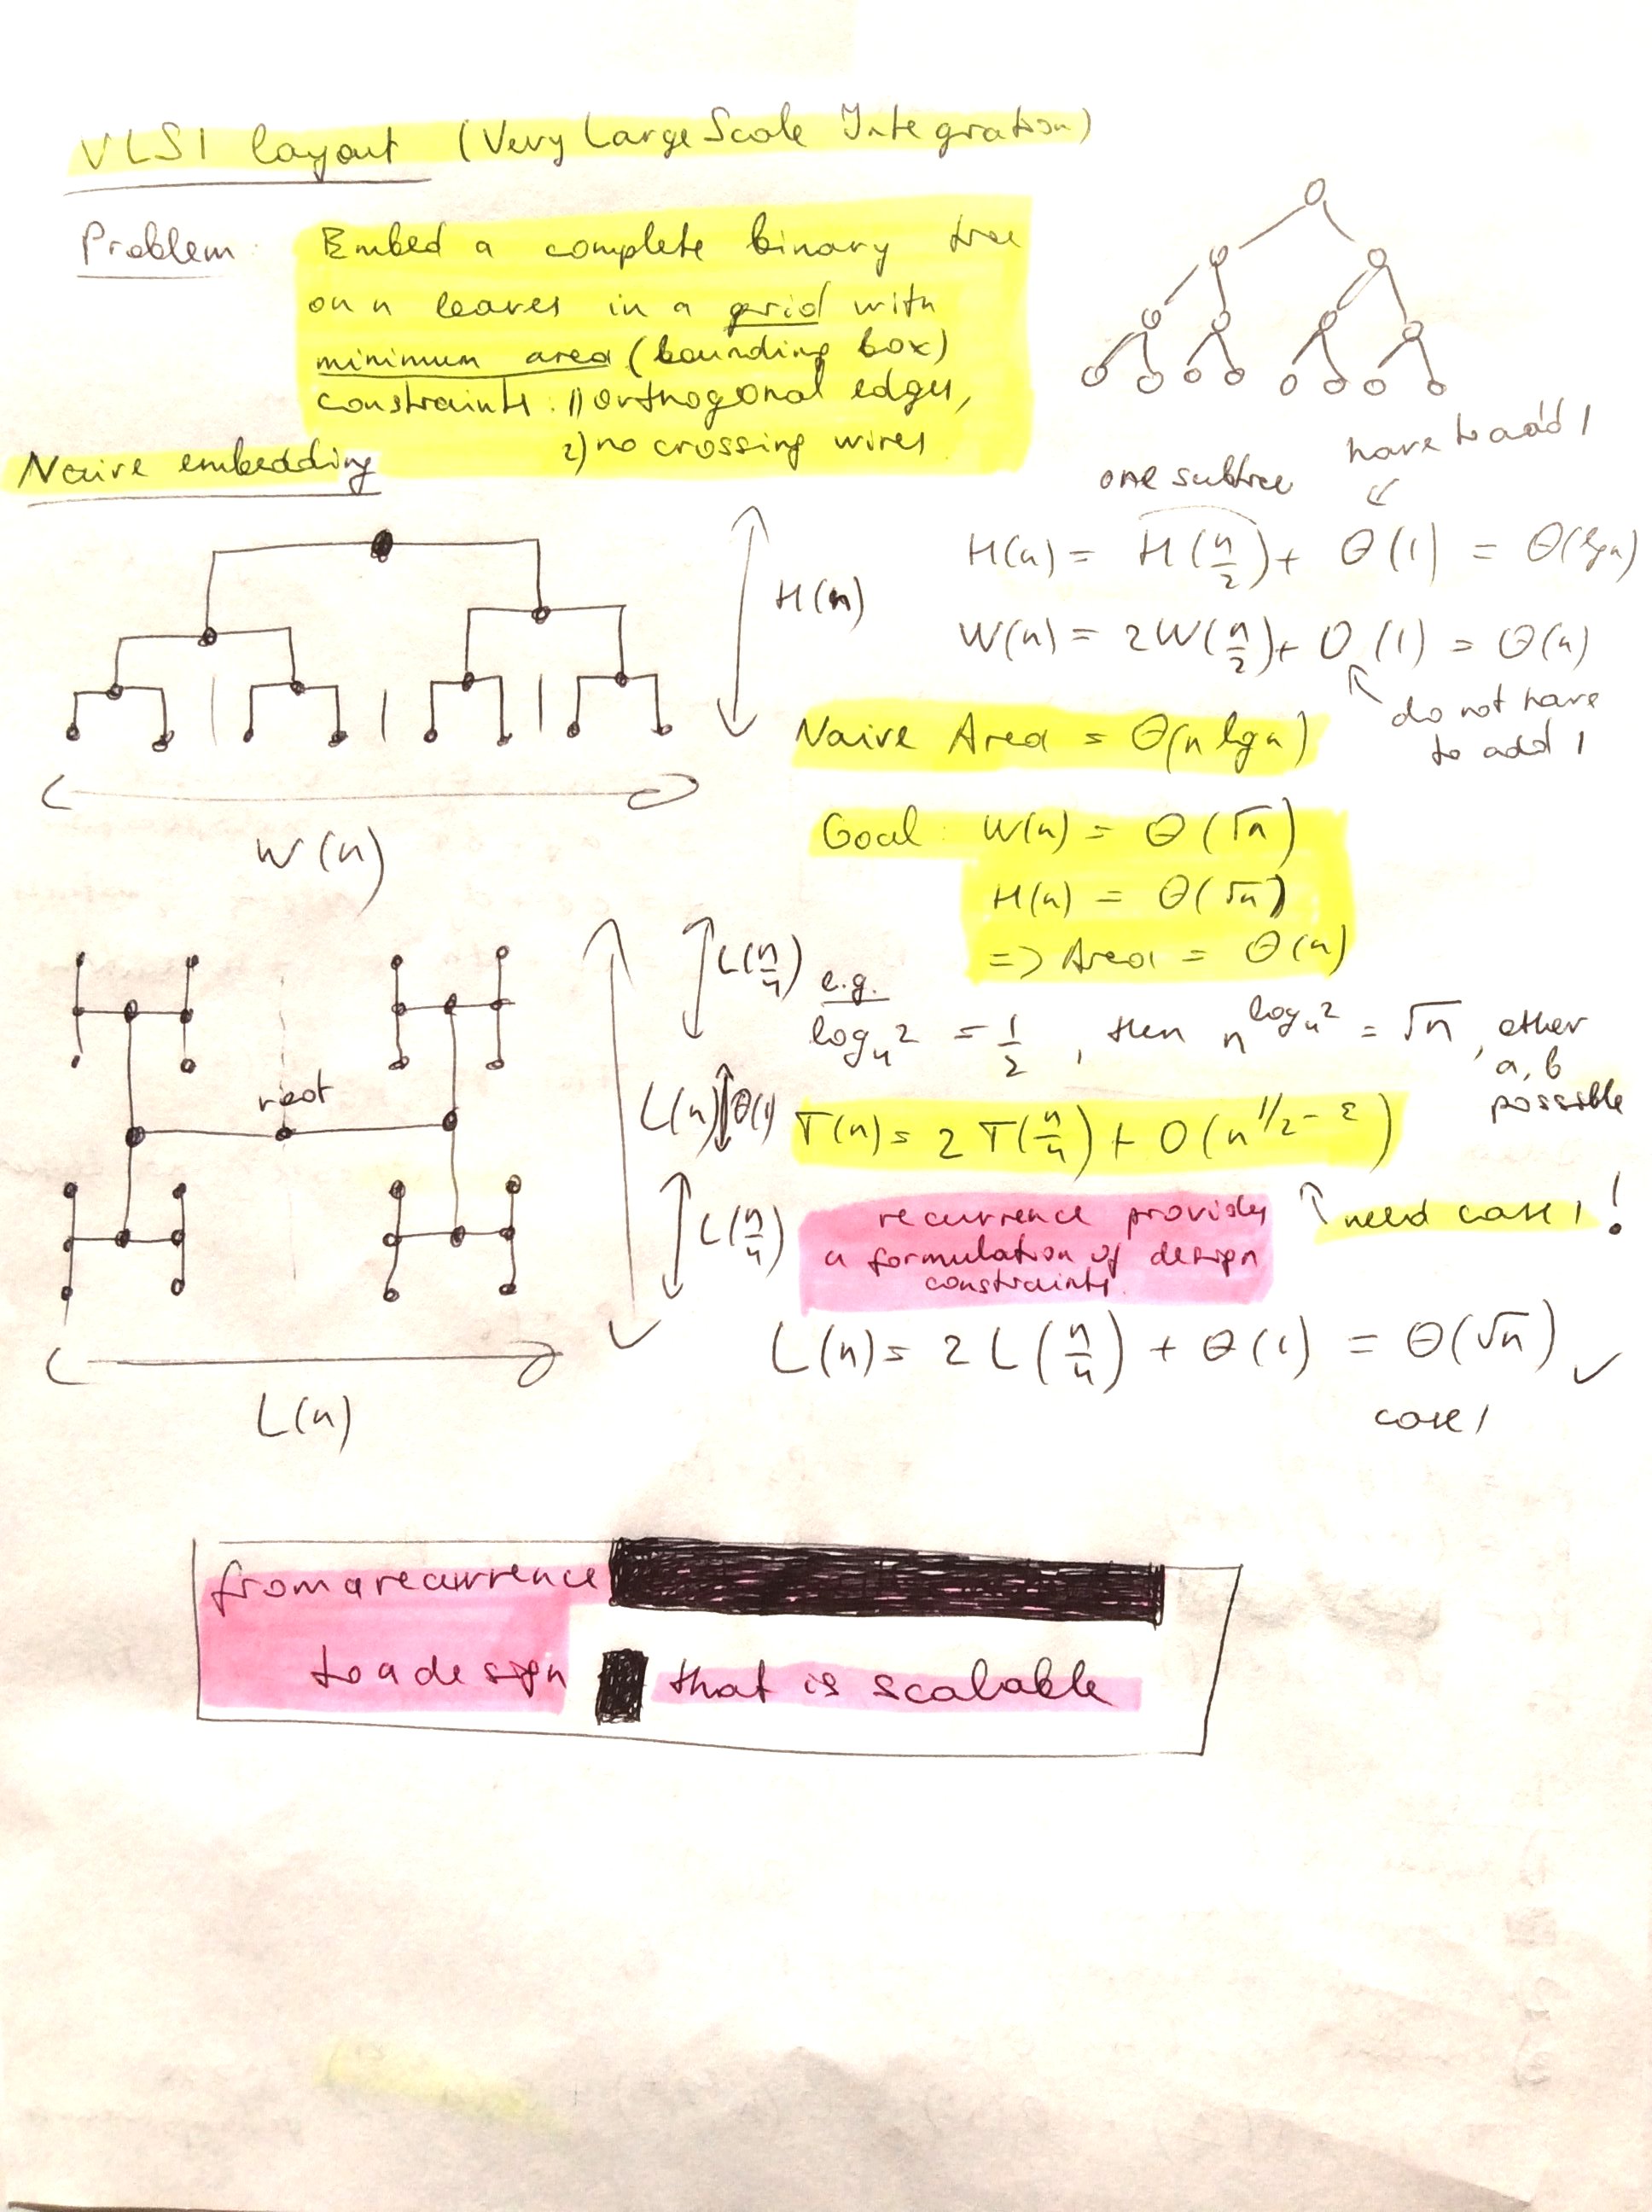 VLSI layout (Very Large Scale Integration)
Problem: Embed a complete binary tree
on n leaves in a grid with
minimum area (bounding box)
constraints: 1) orthogonal edges,
2) no crossing wires
Naive embedding
have to add 1
one subtree
H(n) = H(n/2) + Θ(1) = Θ(lg n)
H(n)
W(n) = 2W(n/2) + O(1) = Θ(n)
do not have
to add 1
Naive Area = Θ(n lg n)
W(n)
Goal: W(n) = Θ(√n)
H(n) = Θ(√n)
=> Area = Θ(n)
L(n/4)
e.g.
log₄2 = 1/2, then n^log₄2 = √n, other
a, b
possible
root
L(n) Θ(1)
T(n) = 2T(n/4) + O(n^1/2-ε)
need case 1!
L(n/4)
recurrence provides
a formulation of design
constraints.
L(n) = 2L(n/4) + Θ(1) = Θ(√n) ✓
case 1
L(n)
from a recurrence
to a design that is scalable